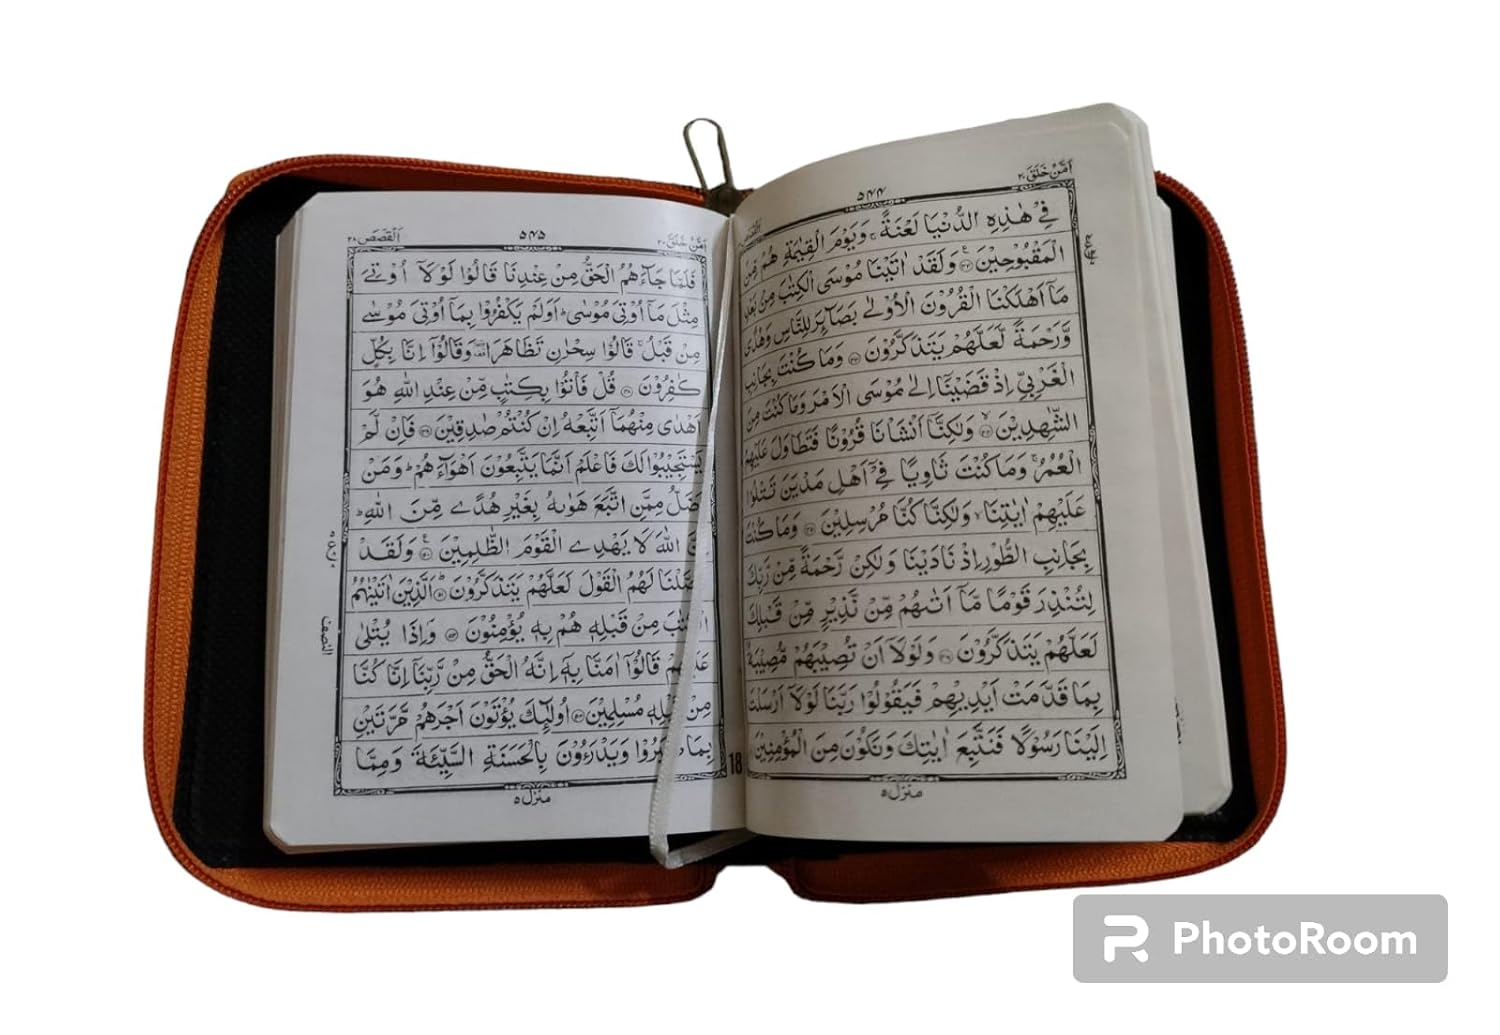 اَمَّنْ خَلَقَ ٢٠
٥٤٤
القصص
فِيْ هٰذِهِ الدُّنْيَا لَعْنَةً ۚ وَيَوْمَ الْقِيٰمَةِ هُمْ مِّنَ
الْمَقْبُوْحِيْنَ ۝٤٢ وَلَقَدْ اٰتَيْنَا مُوْسَى الْكِتٰبَ مِنْۢ بَعْدِ
مَاۤ اَهْلَكْنَا الْقُرُوْنَ الْاُوْلٰى بَصَآئِرَ لِلنَّاسِ وَهُدًى
وَّرَحْمَةً لَّعَلَّهُمْ يَتَذَكَّرُوْنَ ۝٤٣ وَمَا كُنْتَ بِجَانِبِ
الْغَرْبِيِّ اِذْ قَضَيْنَاۤ اِلٰى مُوْسَى الْاَمْرَ وَمَا كُنْتَ مِنَ
الشّٰهِدِيْنَ ۝٤٤ وَلٰكِنَّاۤ اَنْشَاْنَا قُرُوْنًا فَتَطَاوَلَ عَلَيْهِمُ
الْعُمُرُ ۚ وَمَا كُنْتَ ثَاوِيًا فِيْۤ اَهْلِ مَدْيَنَ تَتْلُوْا
عَلَيْهِمْ اٰيٰتِنَا ۙ وَلٰكِنَّا كُنَّا مُرْسِلِيْنَ ۝٤٥ وَمَا كُنْتَ
بِجَانِبِ الطُّوْرِ اِذْ نَادَيْنَا وَلٰكِنْ رَّحْمَةً مِّنْ رَّبِّكَ
لِتُنْذِرَ قَوْمًا مَّاۤ اَتٰىهُمْ مِّنْ نَّذِيْرٍ مِّنْ قَبْلِكَ
لَعَلَّهُمْ يَتَذَكَّرُوْنَ ۝٤٦ وَلَوْلَاۤ اَنْ تُصِيْبَهُمْ مُّصِيْبَةٌۢ
بِمَا قَدَّمَتْ اَيْدِيْهِمْ فَيَقُوْلُوْا رَبَّنَا لَوْلَاۤ اَرْسَلْتَ
اِلَيْنَا رَسُوْلًا فَنَتَّبِعَ اٰيٰتِكَ وَنَكُوْنَ مِنَ الْمُؤْمِنِيْنَ
منزل ٥
اَمَّنْ خَلَقَ ٢٠
٥٤٥
اَلْقَصَص ٢٨
فَلَمَّا جَآءَهُمُ الْحَقُّ مِنْ عِنْدِنَا قَالُوْا لَوْلَاۤ اُوْتِيَ
مِثْلَ مَاۤ اُوْتِيَ مُوْسٰى ؕ اَوَلَمْ يَكْفُرُوْا بِمَاۤ اُوْتِيَ مُوْسٰى
مِنْ قَبْلُ ۚ قَالُوْا سِحْرٰنِ تَظَاهَرَا ۥۚ وَقَالُوْۤا اِنَّا بِكُلٍّ
كٰفِرُوْنَ ۝٤٨ قُلْ فَاْتُوْا بِكِتٰبٍ مِّنْ عِنْدِ اللّٰهِ هُوَ
اَهْدٰى مِنْهُمَاۤ اَتَّبِعْهُ اِنْ كُنْتُمْ صٰدِقِيْنَ ۝٤٩ فَاِنْ لَّمْ
يَسْتَجِيْبُوْا لَكَ فَاعْلَمْ اَنَّمَا يَتَّبِعُوْنَ اَهْوَآءَهُمْ ؕ وَمَنْ
اَضَلُّ مِمَّنِ اتَّبَعَ هَوٰىهُ بِغَيْرِ هُدًى مِّنَ اللّٰهِ ؕ
اللّٰهَ لَا يَهْدِى الْقَوْمَ الظّٰلِمِيْنَ ۝٥٠ وَلَقَدْ
وَصَّلْنَا لَهُمُ الْقَوْلَ لَعَلَّهُمْ يَتَذَكَّرُوْنَ ۝٥١ اَلَّذِيْنَ اٰتَيْنٰهُمُ
الْكِتٰبَ مِنْ قَبْلِهٖ هُمْ بِهٖ يُؤْمِنُوْنَ ۝٥٢ وَاِذَا يُتْلٰى
عَلَيْهِمْ قَالُوْۤا اٰمَنَّا بِهٖۤ اِنَّهُ الْحَقُّ مِنْ رَّبِّنَاۤ اِنَّا كُنَّا
مِنْ قَبْلِهٖ مُسْلِمِيْنَ ۝٥٣ اُولٰٓئِكَ يُؤْتَوْنَ اَجْرَهُمْ مَّرَّتَيْنِ
بِمَا صَبَرُوْا وَيَدْرَءُوْنَ بِالْحَسَنَةِ السَّيِّئَةَ وَمِمَّا
النصف
منزل ٥
18
PhotoRoom